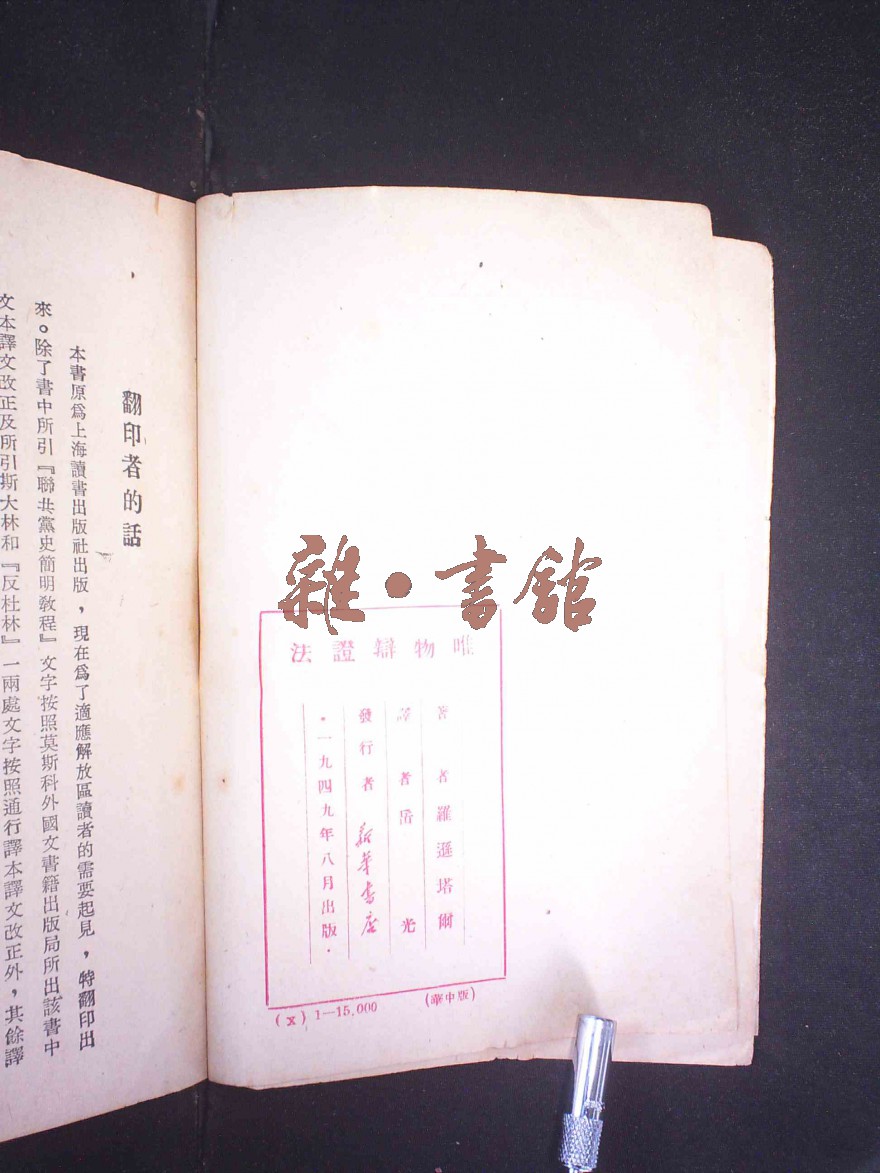 雜・書館
唯物辯證法
著者羅遜塔爾
譯者岳光
發行者新華書店
・一九四九年八月出版・
(x) 1—15,000
(華中版)
翻印者的話
本書原爲上海讀書出版社出版，現在爲了適應解放區讀者的需要起見，特翻印出
來。除了書中所引『聯共黨史簡明教程』文字按照莫斯科外國文書籍出版局所出該書中
文本譯文改正及所引斯大林和『反杜林』一兩處文字按照通行譯本譯文改正外，其餘譯